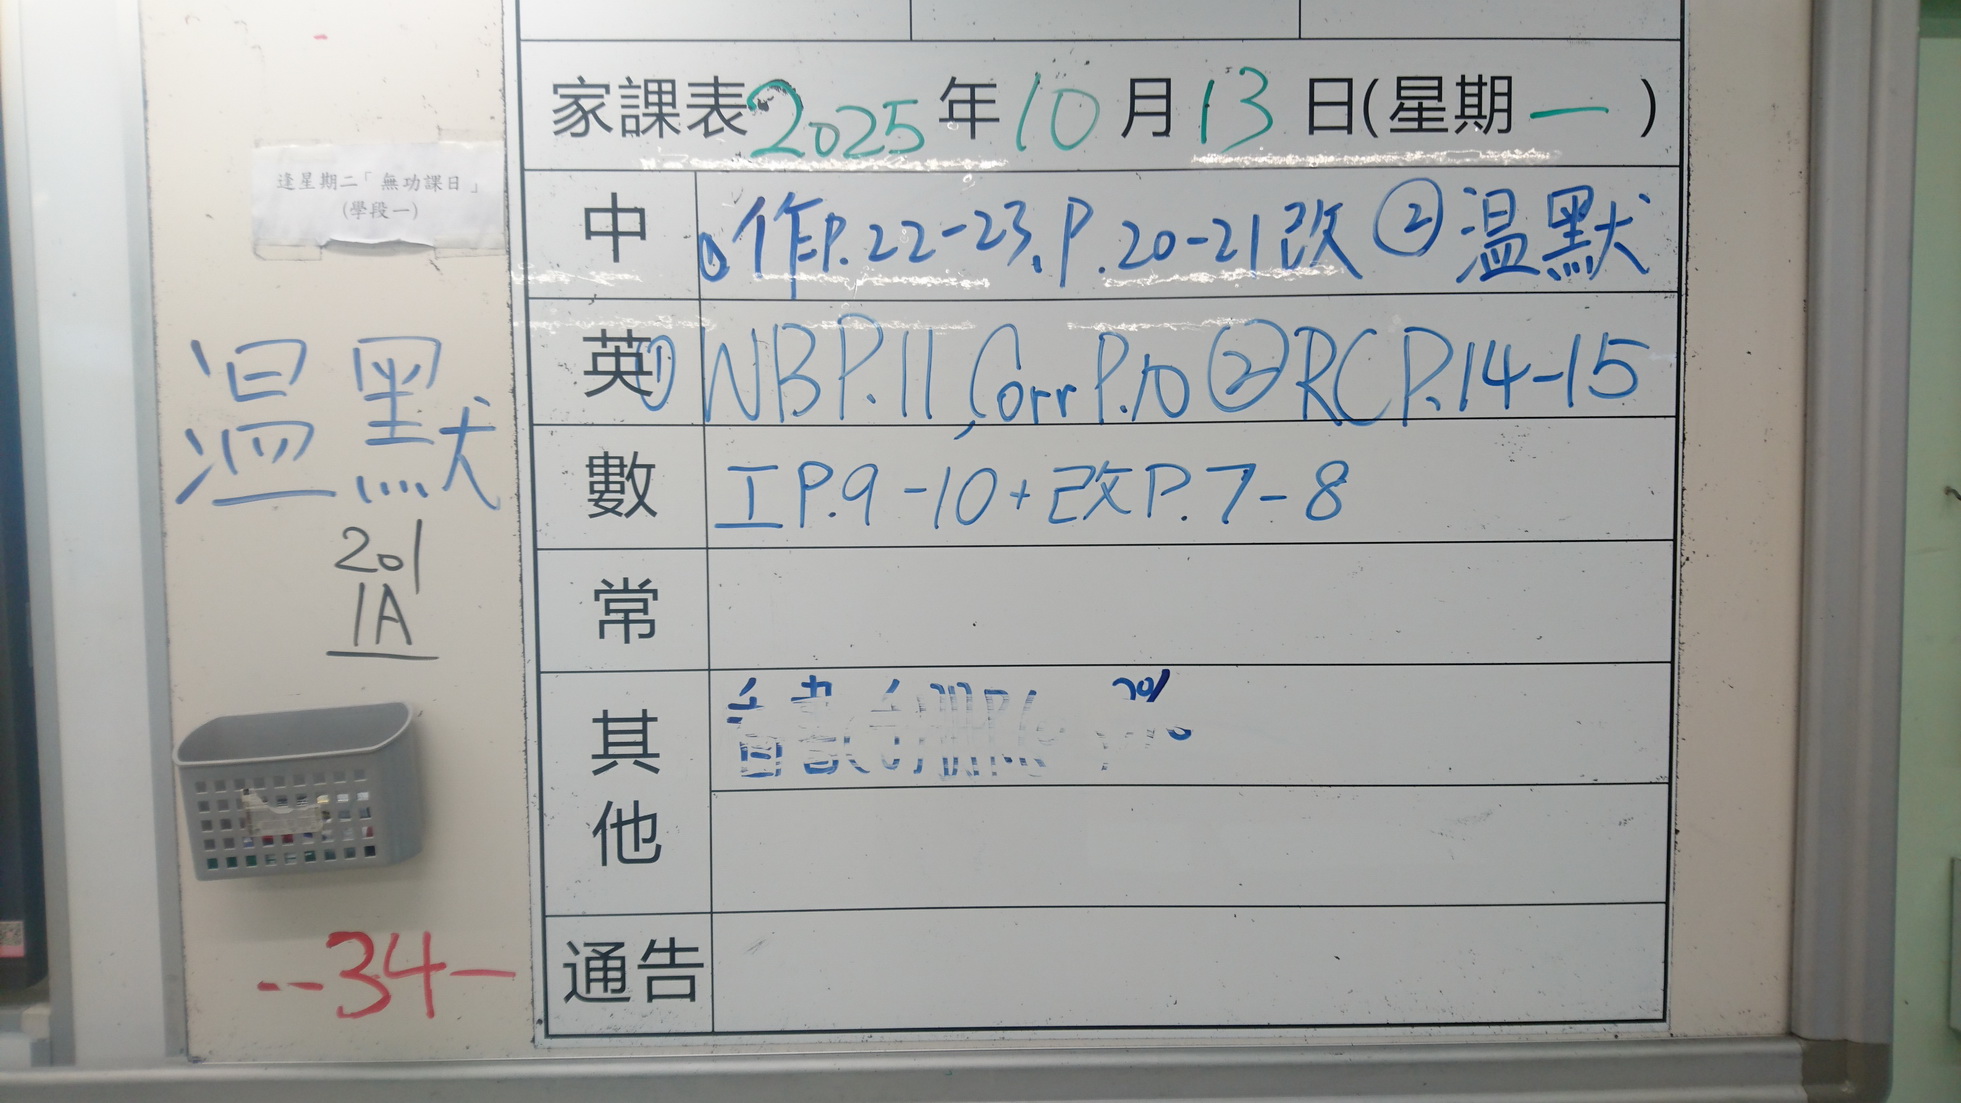 家課表2025年10月13日(星期一)
逢星期二「無功課日」
(學段一)
中 ①作P.22-23、P.20-21改 ②温默
英 ①WB P.11, Corr P.10 ②RC P.14-15
數 工P.9-10+改P.7-8
常
其他
通告
温默
201
1A
--34-